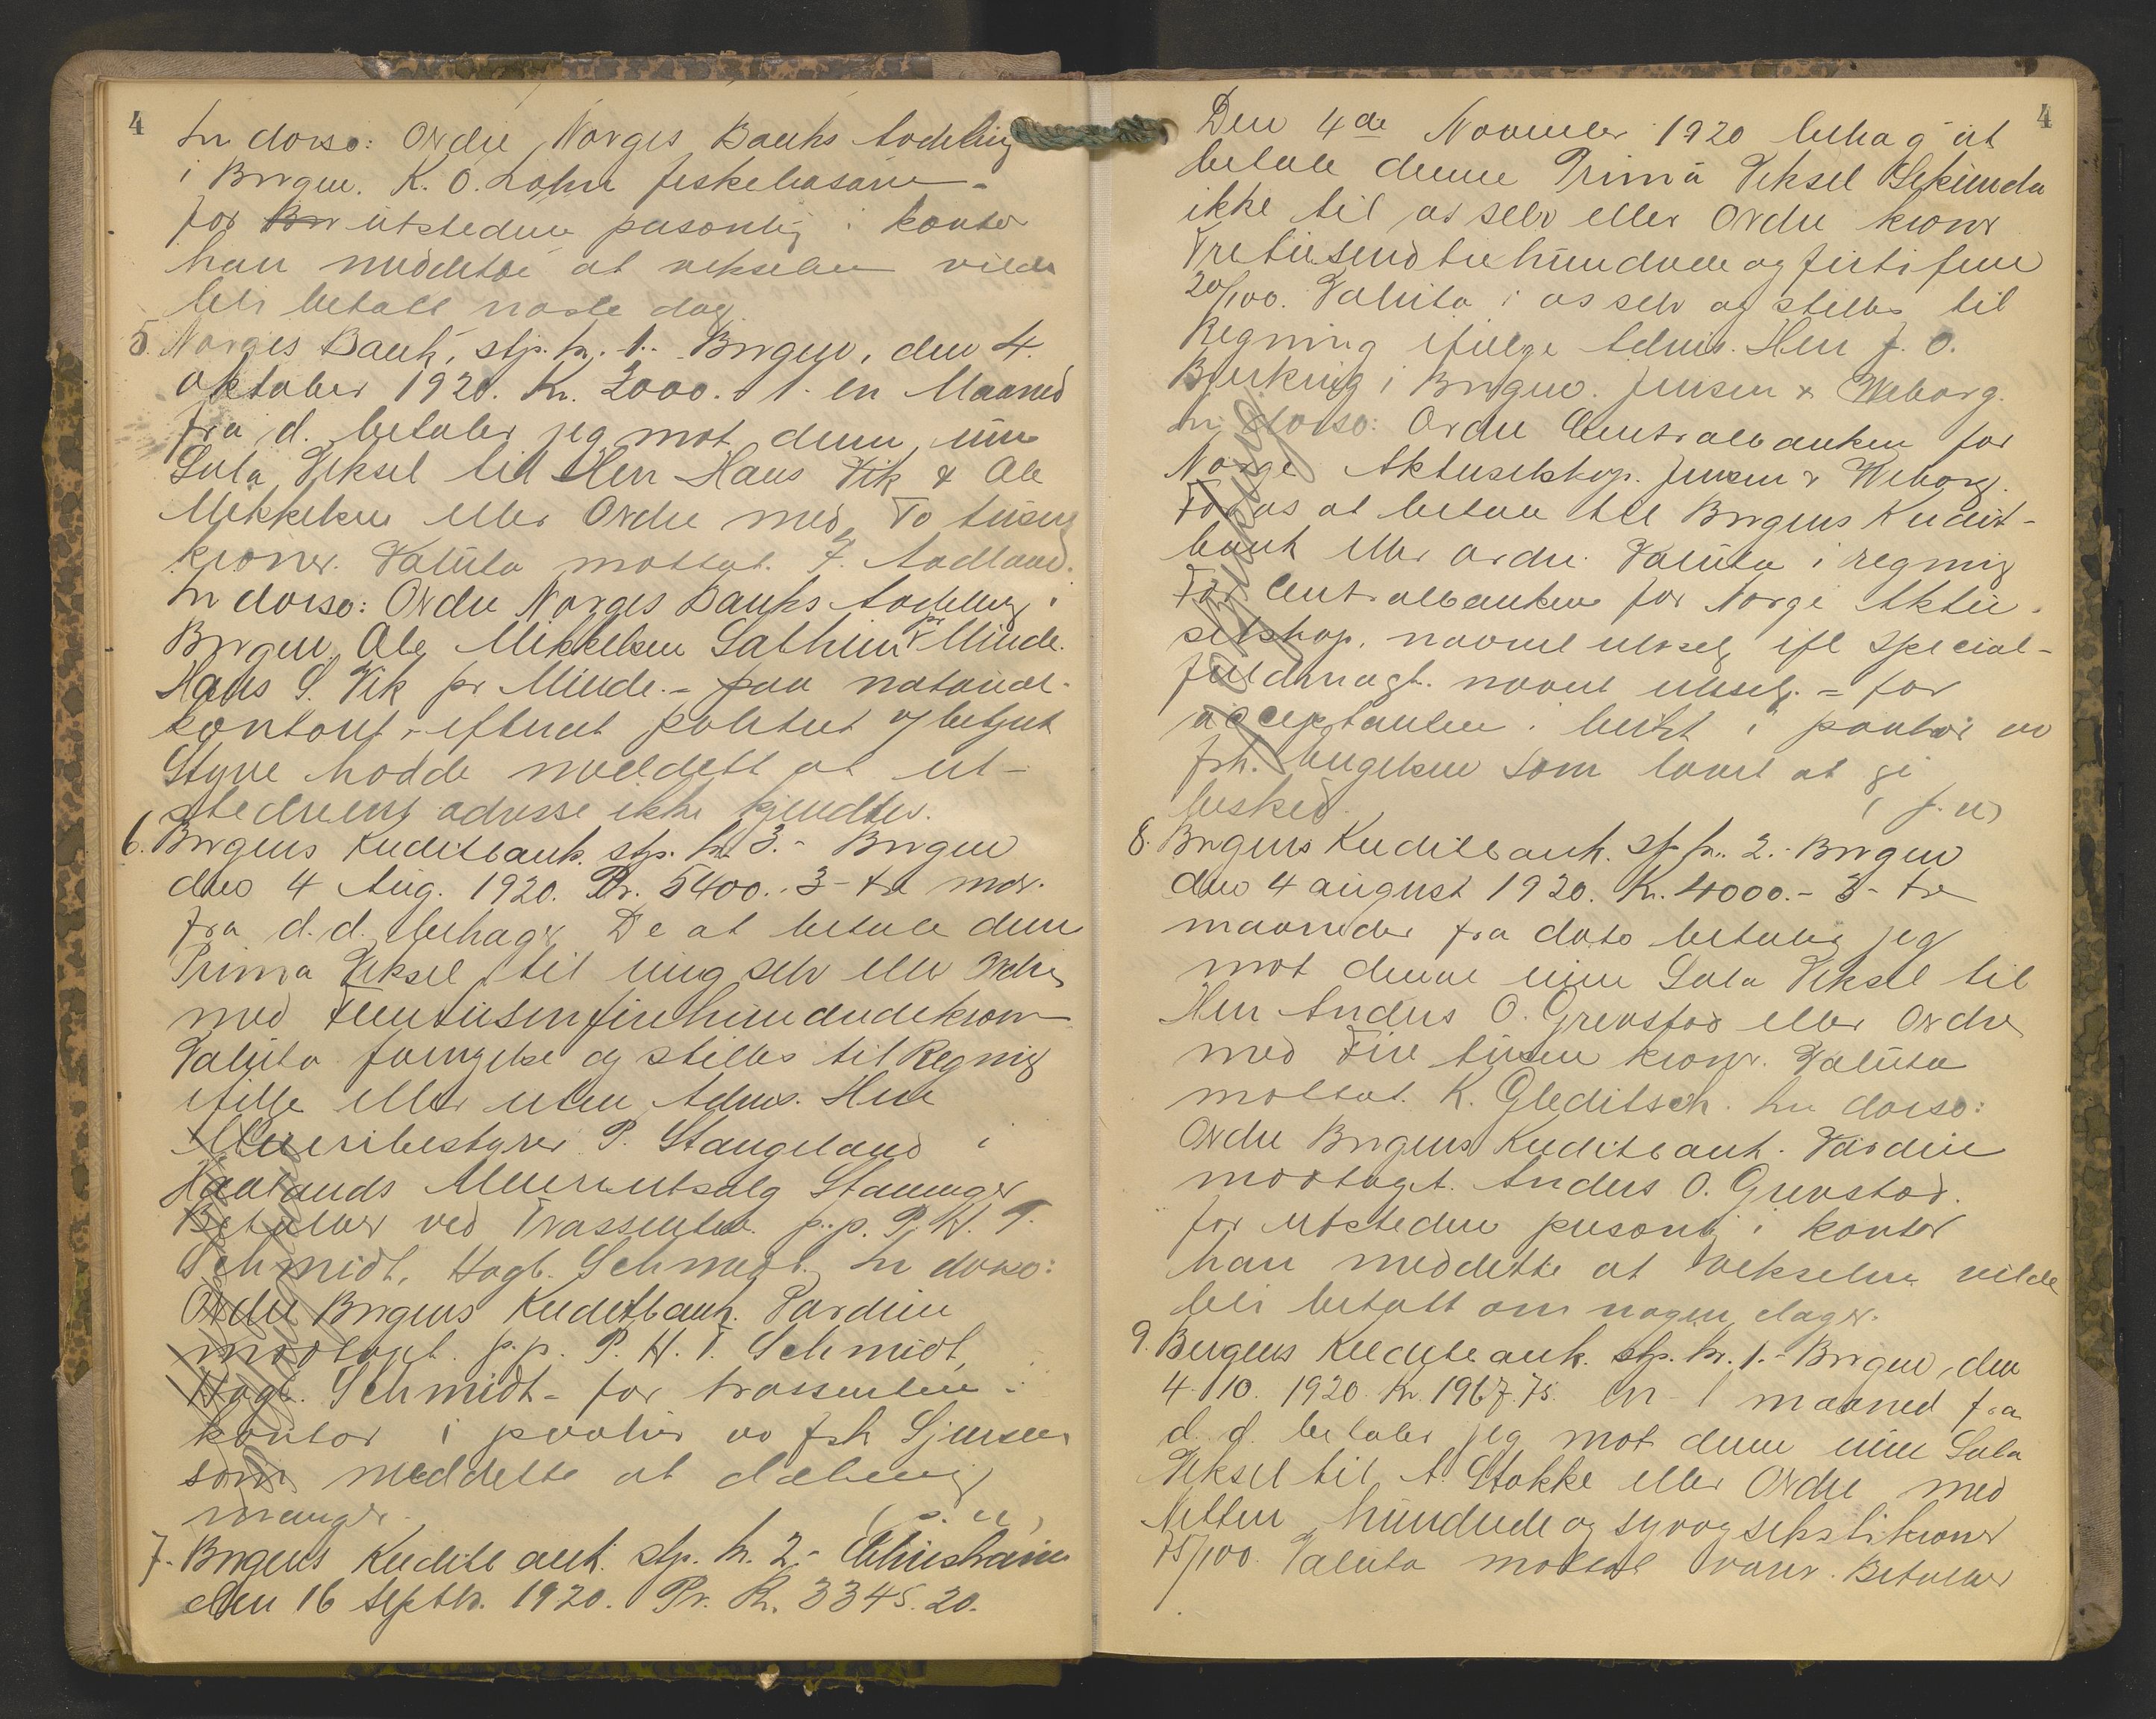 4
In dorso: Ordre Norges Banks Avdeling
i Bergen. K. O. fiskebasar -
for utstederen personlig i kontor
han meddelte at vekselen vilde
bli betalt næste dag.
5. Norges Bank, stp. kr. 1.- Bergen, den 4.
oktober 1920. Kr. 2000. 1 en Maaned
fra d. betaler jeg mot denne min
Sola Veksel til Herr Hans Vik & Ole
Mikkelsen eller Ordre med To tusen
kroner. Valuta mottat. F. Aadland.
In dorso: Ordre Norges Banks Avdeling i
Bergen. Ole Mikkelsen Sathun pr Minde.
Hans S. Vik pr Minde. - paa notarial-
kontoret - efterat politiet v/ betjent
Styve hadde meddelt at ut-
stederens adresse ikke kjendtes.
6. Bergens Kreditbank. stp. kr. 3.- Bergen
den 4 Aug. 1920. Pr. 5400.. 3 - tre mdr.
fra d.d. behager De at betale denne
Prima Veksel til mig selv eller Ordre
med Femtusenfirehundredekroner
Valuta og stilles til Regning
ifølge eller uten Advis. Herr
Meieribestyrer P. Stangeland i
Haalands Meieriutsalg Stavanger
Betalbar ved Trassenten. p.p. P. H. T.
Schmidt, Hagb. Schmidt. In dorso:
Ordre Bergens Kreditbank. Værdien
modtaget. p.p. P. H. T. Schmidt,
Hagb. Schmidt - for trassenten i
kontor i prokura av frk Sjursen
som meddelte at dækning
mangler. (s. u)
7. Bergens Kreditbank. stp. kr. 2.- Christiania
den 16 Septbr. 1920. Pr. Kr. 3345.20.
4
Den 4de November 1920 behag at
betale denne Prima Veksel Sekunda
ikke til os selv eller Ordre kroner
Tretusendtrehundrede og førtifem
20/100. Valuta i os selv og stilles til
Regning ifølge Advis. Herr J. O.
i Bergen. Jensen & Weborg.
In dorso: Ordre Centralbanken for
Norge Aktieselskap. Jensen & Weborg.
For os at betale til Bergens Kredit-
bank eller ordre. Valuta i regning
For Centralbanken for Norge Aktie-
selskap. navnet uleselig ifl special-
fuldmagt. navnet uleselig. - for
acceptanten i
frk. Engelsen som lovet at gi
besked. (s. u)
8. Bergens Kreditbank. stp kr. 2.- Bergen
den 4 august 1920. Kr. 4000.- 3 - tre
maaneder fra dato betaler jeg
mot denne min Sola Veksel til
Herr Anders O. Grevstad eller Ordre
med Fire tusen kroner. Valuta
mottat. K. Gleditsch. In dorso:
Ordre Bergens Kreditbank. Værdien
modtaget. Anders O. Grevstad.
for utstederen personlig i kontor
han meddelte at vekselen vilde
bli betalt om nogen dager.
9. Bergens Kreditbank. stp. kr. 1.- Bergen, den
4. 10. 1920. Kr. 1967.75. En - 1 maaned fra
d. d. betaler jeg mot denne min Sola
Veksel til A. Stokke eller Ordre med
Nitten hundrede og syvogsekstikroner
75/100. Valuta mottat i varer. Betalbar